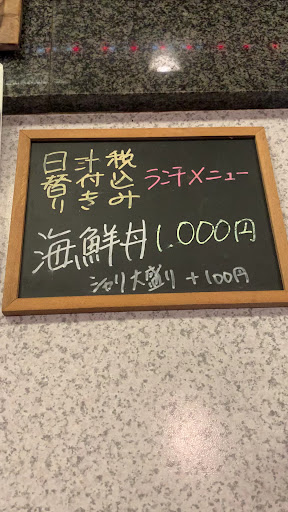 税込み
汁付き
日替り
ランチメニュー
海鮮丼1.000円
シャリ大盛り +100円